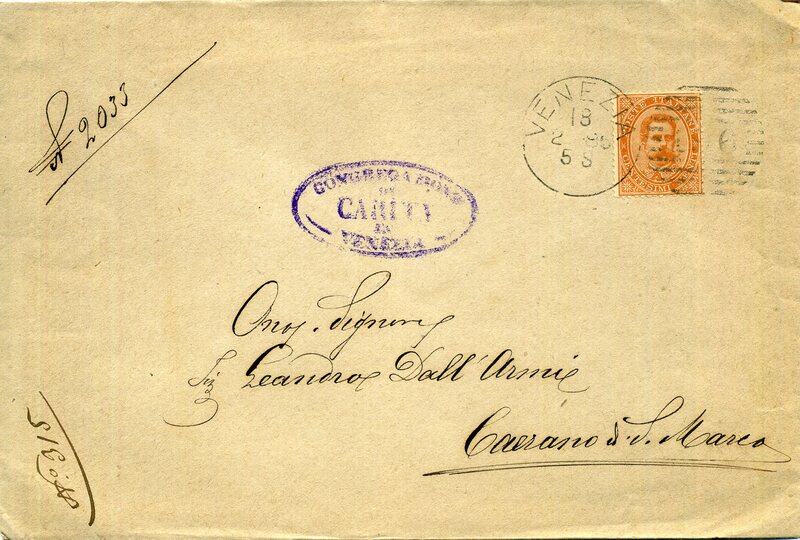 N 2033
VENEZIA
18
2 86
5 S
POSTE ITALIANE
CENTESIMI
CONGREGAZIONE
DI
CARITÀ
IN
VENEZIA
Onor. Signore
Sig Leandro Dall'Armi
Caerano di S. Marco
N. 315